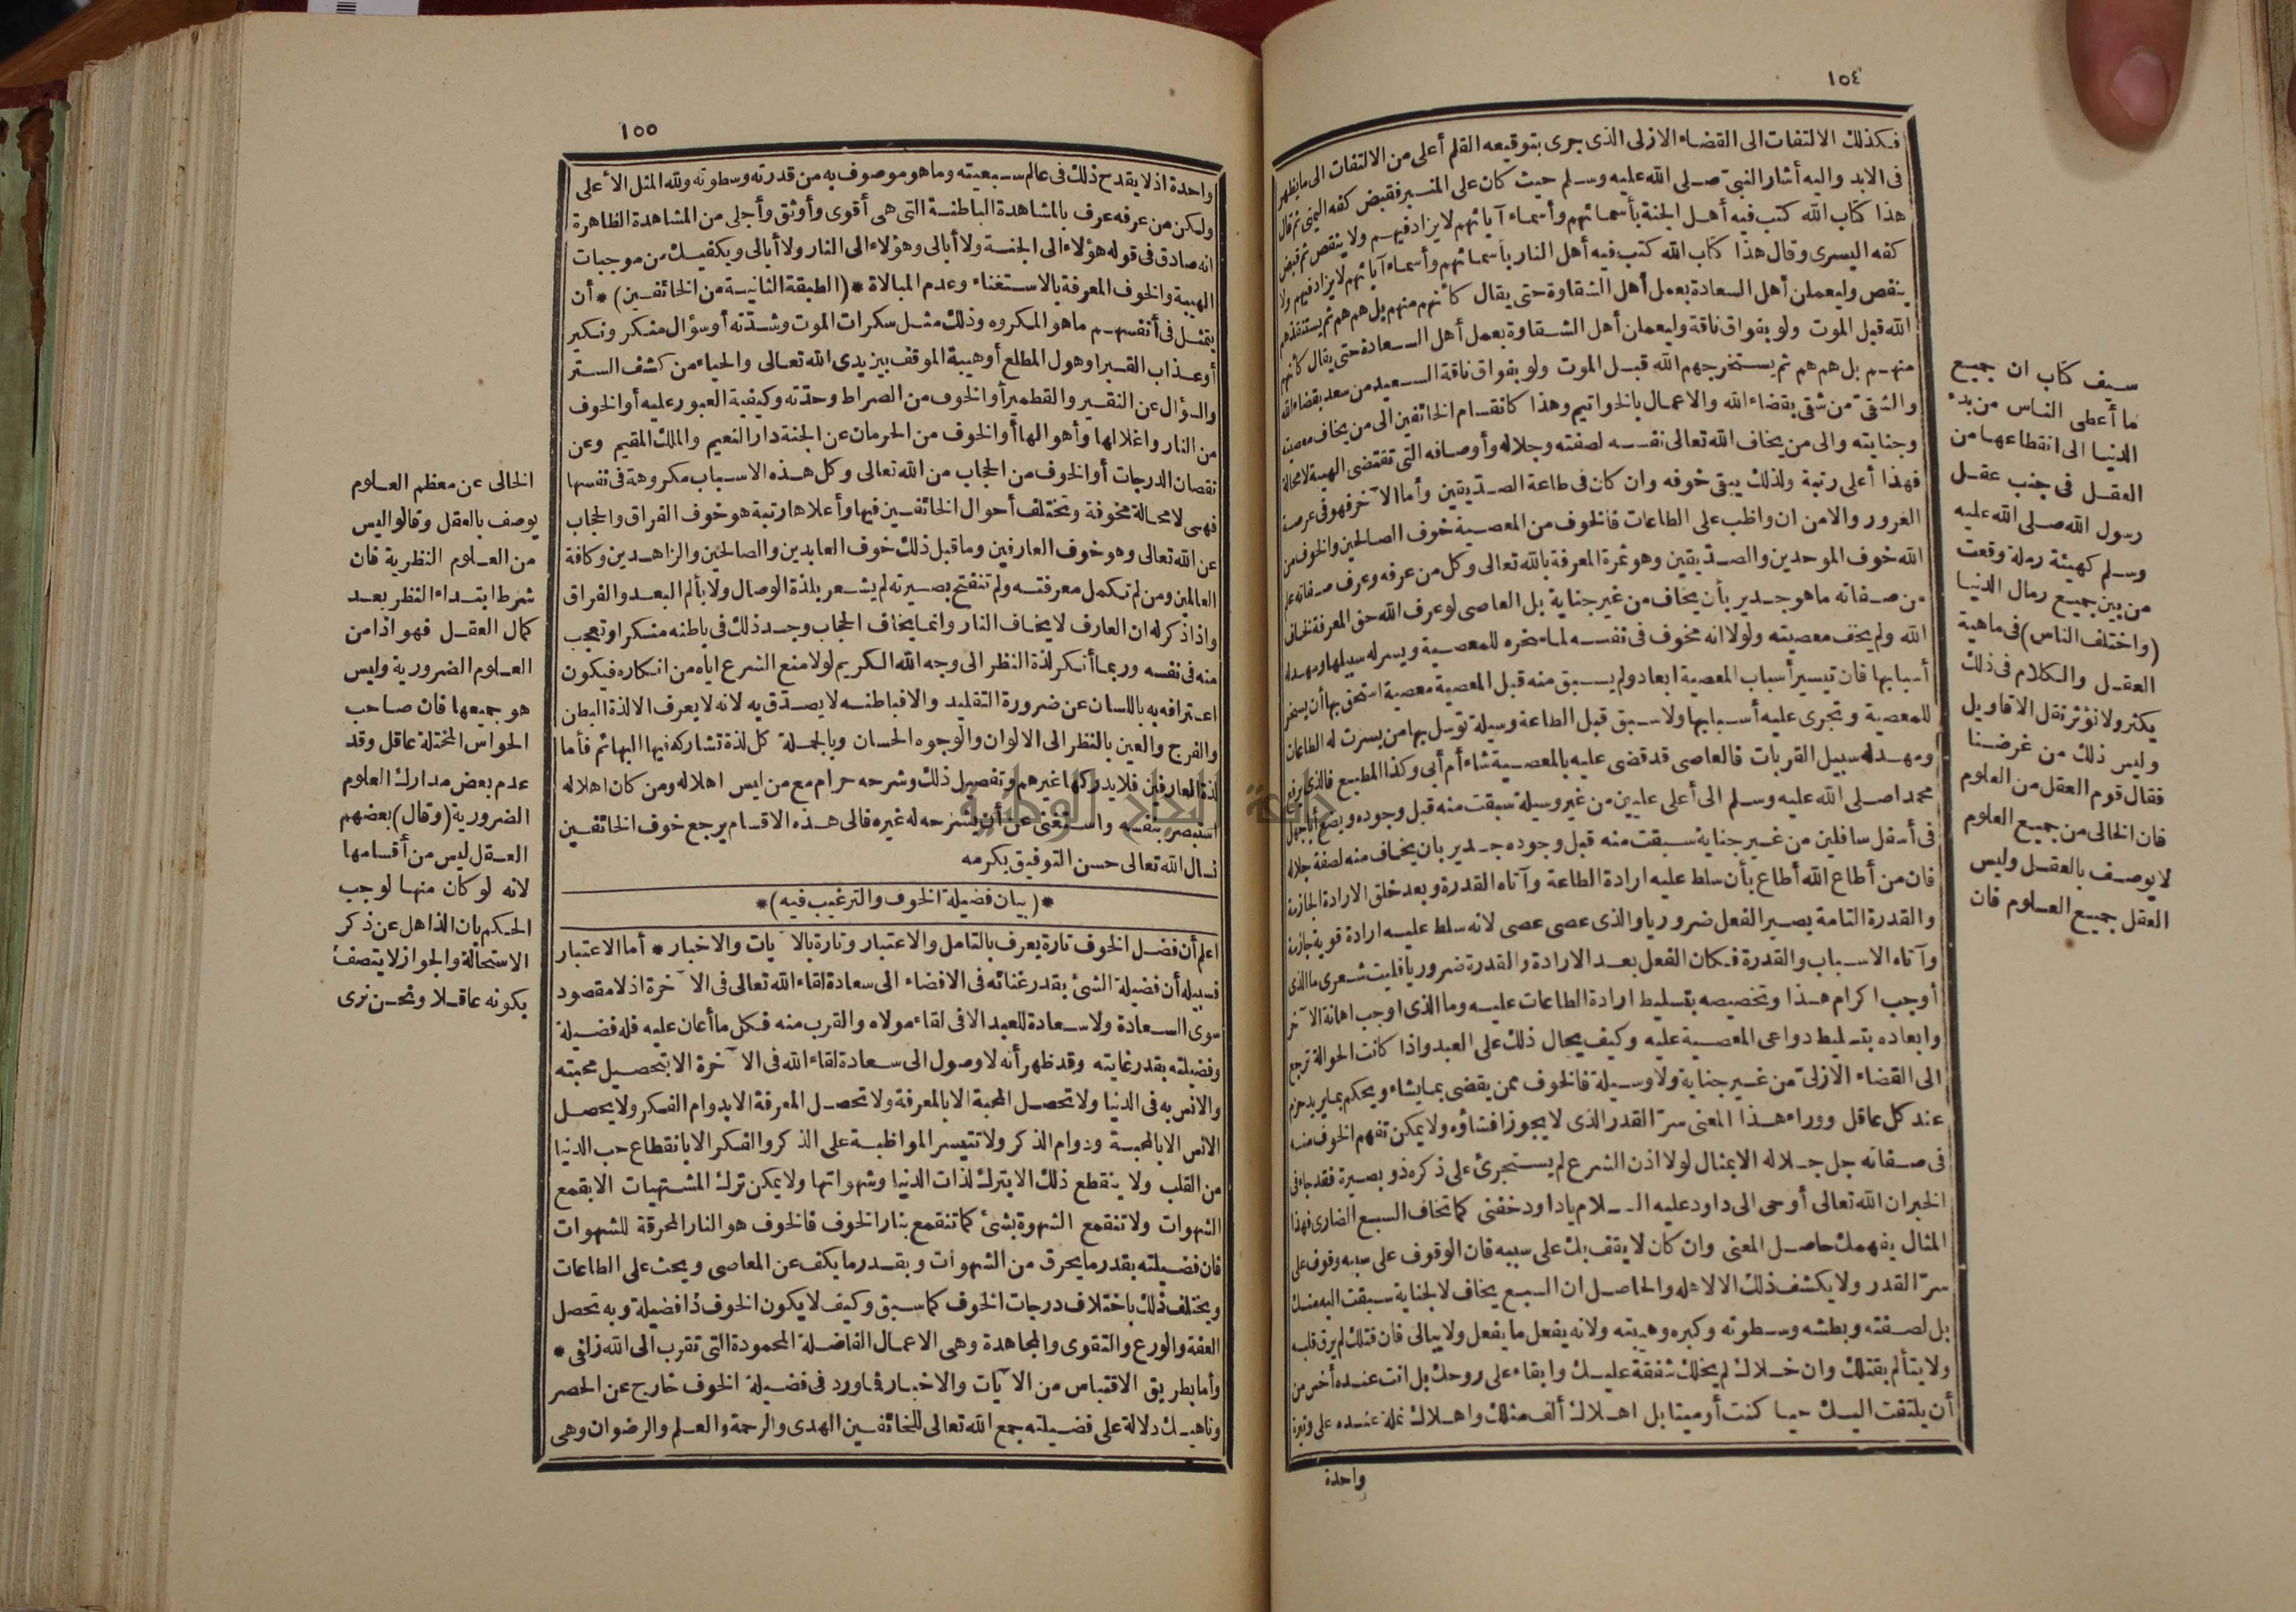 ١٥٤
فكذلك الالتفات الى القضاء الازلى الذى جرى بتوقيعه القلم أعلى من الالتفات الى ما يظهر
فى الابد واليه أشار النبى صلى الله عليه وسلم حيث كان على المنبر فقبض كفه اليمنى ثم قال
هذا كتاب الله كتب فيه أهل الجنة بأسمائهم وأسماء آبائهم لا يزاد فيهم ولا ينقص ثم قبض
كفه اليسرى وقال هذا كتاب الله كتب فيه أهل النار بأسمائهم وأسماء آبائهم لا يزاد فيهم ولا
ينقص وليعملن أهل السعادة بعمل أهل الشقاوة حتى يقال كأنهم منهم بل هم هم ثم يستنقذهم
الله قبل الموت ولو بفواق ناقة وليعملن أهل الشقاوة بعمل أهل السعادة حتى يقال كأنهم
منهم بل هم هم ثم يستخرجهم الله قبل الموت ولو بفواق ناقة السعيد من سعد بقضاء الله
والشقىّ من شقى بقضاء الله والاعمال بالخواتيم وهذا كانقسام الخائفين الى من يخاف معصيته
وجنايته والى من يخاف الله تعالى نفسه لصفته وجلاله وأوصافه التى تقتضى الهيبة لا محالة
فهذا أعلى رتبة ولذلك يبقى خوفه وان كان فى طاعة الصدّيقين وأما الآخر فهو فى عرصة
الغرور والامن ان واظب على الطاعات فالخوف من المعصية خوف الصالحين والخوف من
الله خوف الموحدين والصدّيقين وهو ثمرة المعرفة بالله تعالى وكل من عرفه وعرف صفاته علم
من صفاته ما هو جدير بأن يخاف من غير جناية بل العاصى لو عرف الله حق المعرفة لخاف
الله ولم يخف معصيته ولولا انه مخوف فى نفسه لما سخره للمعصية ويسر له سبيلها ومهد له
أسبابها فان تيسير أسباب المعصية ابعاد ولم يسبق منه قبل المعصية معصية استحق بها أن يسخر
للمعصية وتجرى عليه أسبابها ولا سبق قبل الطاعة وسيلة توسل بها من يسرت له الطاعات
ومهد له سبيل القربات فالعاصى قد قضى عليه بالمعصية شاء أم أبى وكذا المطيع فالذى يرفع
محمدا صلى الله عليه وسلم الى أعلى عليين من غير وسيلة سبقت منه قبل وجوده ويضع أبا جهل
فى أسفل سافلين من غير جناية سبقت منه قبل وجوده جدير بان يخاف منه لصفة جلاله
فان من أطاع الله أطاع بأن سلط عليه ارادة الطاعة وآتاه القدرة وبعد خلق الارادة الجازمة
والقدرة التامة يصير الفعل ضروريا والذى عصى عصى لانه سلط عليه ارادة قوية جازمة
وآتاه الاسباب والقدرة فكان الفعل بعد الارادة والقدرة ضروريا فليت شعرى ما الذى
أوجب اكرام هذا وتخصيصه بتسليط ارادة الطاعات عليه وما الذى اوجب اهانة الآخر
وابعاده بتسليط دواعى المعصية عليه وكيف يحال ذلك على العبد واذا كانت الحوالة ترجع
الى القضاء الازلىّ من غير جناية ولا وسيلة فالخوف ممن يقضى بما يشاء ويحكم بما يريد حزم
عند كل عاقل ووراء هذا المعنى سرّ القدر الذى لا يجوز افشاؤه ولا يمكن تفهم الخوف منه
فى صفاته جل جلاله الا بمثال لولا اذن الشرع لم يستجرئ على ذكره ذو بصيرة فقد جاء فى
الخبر ان الله تعالى أوحى الى داود عليه السلام يا داود خفنى كما تخاف السبع الضارى فهذا
المثال يفهمك حاصل المعنى وان كان لا يقف بك على سببه فان الوقوف على سببه وقوف على
سرّ القدر ولا يكشف ذلك الا لاهله والحاصل ان السبع يخاف لا لجناية سبقت اليه منك
بل لصفته وبطشه وسطوته وكبره وهيبته ولانه يفعل ما يفعل ولا يبالى فان قتلك لم يرق قلبه
ولا يتألم بقتلك وان خلاك لم يخلك شفقة عليك وابقاء على روحك بل انت عنده أخس من
أن يلتفت اليك حيا كنت أو ميتا بل اهلاك ألف مثلك واهلاك نملة عنده على وتيرة
واحدة
سيف كتاب ان جميع
ما أعطى الناس من بدء
الدنيا الى انقطاعها من
العقل فى جنب عقل
رسول الله صلى الله عليه
وسلم كهيئة رملة وقعت
من بين جميع رمال الدنيا
(واختلف الناس) فى ماهية
العقل والكلام فى ذلك
يكثر ولا نؤثر نقل الاقاويل
وليس ذلك من غرضنا
فقال قوم العقل من العلوم
فان الخالى من جميع العلوم
لا يوصف بالعقل وليس
العقل جميع العلوم فان
١٥٥
واحدة اذ لا يقدح ذلك فى عالم سبعيته وما هو موصوف به من قدرته وسطوته ولله المثل الأعلى
ولكن من عرفه عرف بالمشاهدة الباطنة التى هى أقوى وأوثق وأجلى من المشاهدة الظاهرة
انه صادق فى قوله هؤلاء الى الجنة ولا أبالى وهؤلاء الى النار ولا أبالى ويكفيك من موجبات
الهيبة والخوف المعرفة بالاستغناء وعدم المبالاة * (الطبقة الثانية من الخائفين) * أن
يتمثل فى أنفسهم ما هو المكروه وذلك مثل سكرات الموت وشدّته أو سؤال منكر ونكير
أو عذاب القبر او هول المطلع أو هيبة الموقف بين يدى الله تعالى والحياء من كشف الستر
والسؤال عن النقير والقطمير أو الخوف من الصراط وحدّته وكيفية العبور عليه أو الخوف
من النار واغلالها وأهوالها أو الخوف من الحرمان عن الجنة دار النعيم والملك المقيم وعن
نقصان الدرجات أو الخوف من الحجاب من الله تعالى وكل هذه الاسباب مكروهة فى نفسها
فهى لا محالة مخوفة وتختلف أحوال الخائفين فيها وأعلاها رتبة هو خوف الفراق والحجاب
عن الله تعالى وهو خوف العارفين وما قبل ذلك خوف العابدين والصالحين والزاهدين وكافة
العالمين ومن لم تكمل معرفته ولم تنفتح بصيرته لم يشعر بلذة الوصال ولا بألم البعد والفراق
واذا ذكر له ان العارف لا يخاف النار وانما يخاف الحجاب وجد ذلك فى باطنه منكرا وتعجب
منه فى نفسه وربما أنكر لذة النظر الى وجه الله الكريم لولا منع الشرع اياه من انكاره فيكون
اعترافه به باللسان عن ضرورة التقليد والا فباطنه لا يصدّق به لانه لا يعرف الا لذة البطن
والفرج والعين بالنظر الى الالوان والوجوه الحسان وبالجملة كل لذة تشاركه فيها البهائم فأما
لذة العارفين فلا يدركها غيرهم وتفصيل ذلك وشرحه حرام مع من ليس اهلا له ومن كان اهلا له
استبصر بنفسه واستغنى عن أن يشرحه له غيره فالى هذه الاقسام يرجع خوف الخائفين
نسأل الله تعالى حسن التوفيق بكرمه
* (بيان فضيلة الخوف والترغيب فيه) *
اعلم أن فضل الخوف تارة يعرف بالتامل والاعتبار وتارة بالآيات والاخبار * أما الاعتبار
فسبيله أن فضيلة الشئ بقدر غنائه فى الافضاء الى سعادة لقاء الله تعالى فى الآخرة اذ لا مقصود
سوى السعادة ولا سعادة للعبد الا فى لقاء مولاه والقرب منه فكل ما أعان عليه فله فضيلة
وفضيلته بقدر غايته وقد ظهر أنه لا وصول الى سعادة لقاء الله فى الآخرة الا بتحصيل محبته
والانس به فى الدنيا ولا تحصل المحبة الا بالمعرفة ولا تحصل المعرفة الا بدوام الفكر ولا يحصل
الانس الا بالمحبة ودوام الذكر ولا تتيسر المواظبة على الذكر والفكر الا بانقطاع حب الدنيا
من القلب ولا ينقطع ذلك الا بترك لذات الدنيا وشهواتها ولا يمكن ترك المشتهيات الا بقمع
الشهوات ولا تنقمع الشهوة بشئ كما تنقمع بنار الخوف فالخوف هو النار المحرقة للشهوات
فان فضيلته بقدر ما يحرق من الشهوات وبقدر ما يكف عن المعاصى ويحث على الطاعات
ويختلف ذلك باختلاف درجات الخوف كما سبق وكيف لا يكون الخوف ذا فضيلة وبه تحصل
العفة والورع والتقوى والمجاهدة وهى الاعمال الفاضلة المحمودة التى تقرب الى الله زلفى *
وأما بطريق الاقتباس من الآيات والاخبار فما ورد فى فضيلة الخوف خارج عن الحصر
وناهيك دلالة على فضيلته جمع الله تعالى للخائفين الهدى والرحمة والعلم والرضوان وهى
الخالى عن معظم العلوم
يوصف بالعقل وقالوا ليس
من العلوم النظرية فان
شرط ابتداء النظر بعد
كمال العقل فهو اذا من
العلوم الضرورية وليس
هو جميعها فان صاحب
الحواس المختلة عاقل وقد
عدم بعض مدارك العلوم
الضرورية (وقال) بعضهم
العقل ليس من أقسامها
لانه لو كان منها لوجب
الحكم بان الذاهل عن ذكر
الاستحالة والجواز لا يتصف
بكونه عاقلا ونحن نرى
جامعة النجاح الوطنية